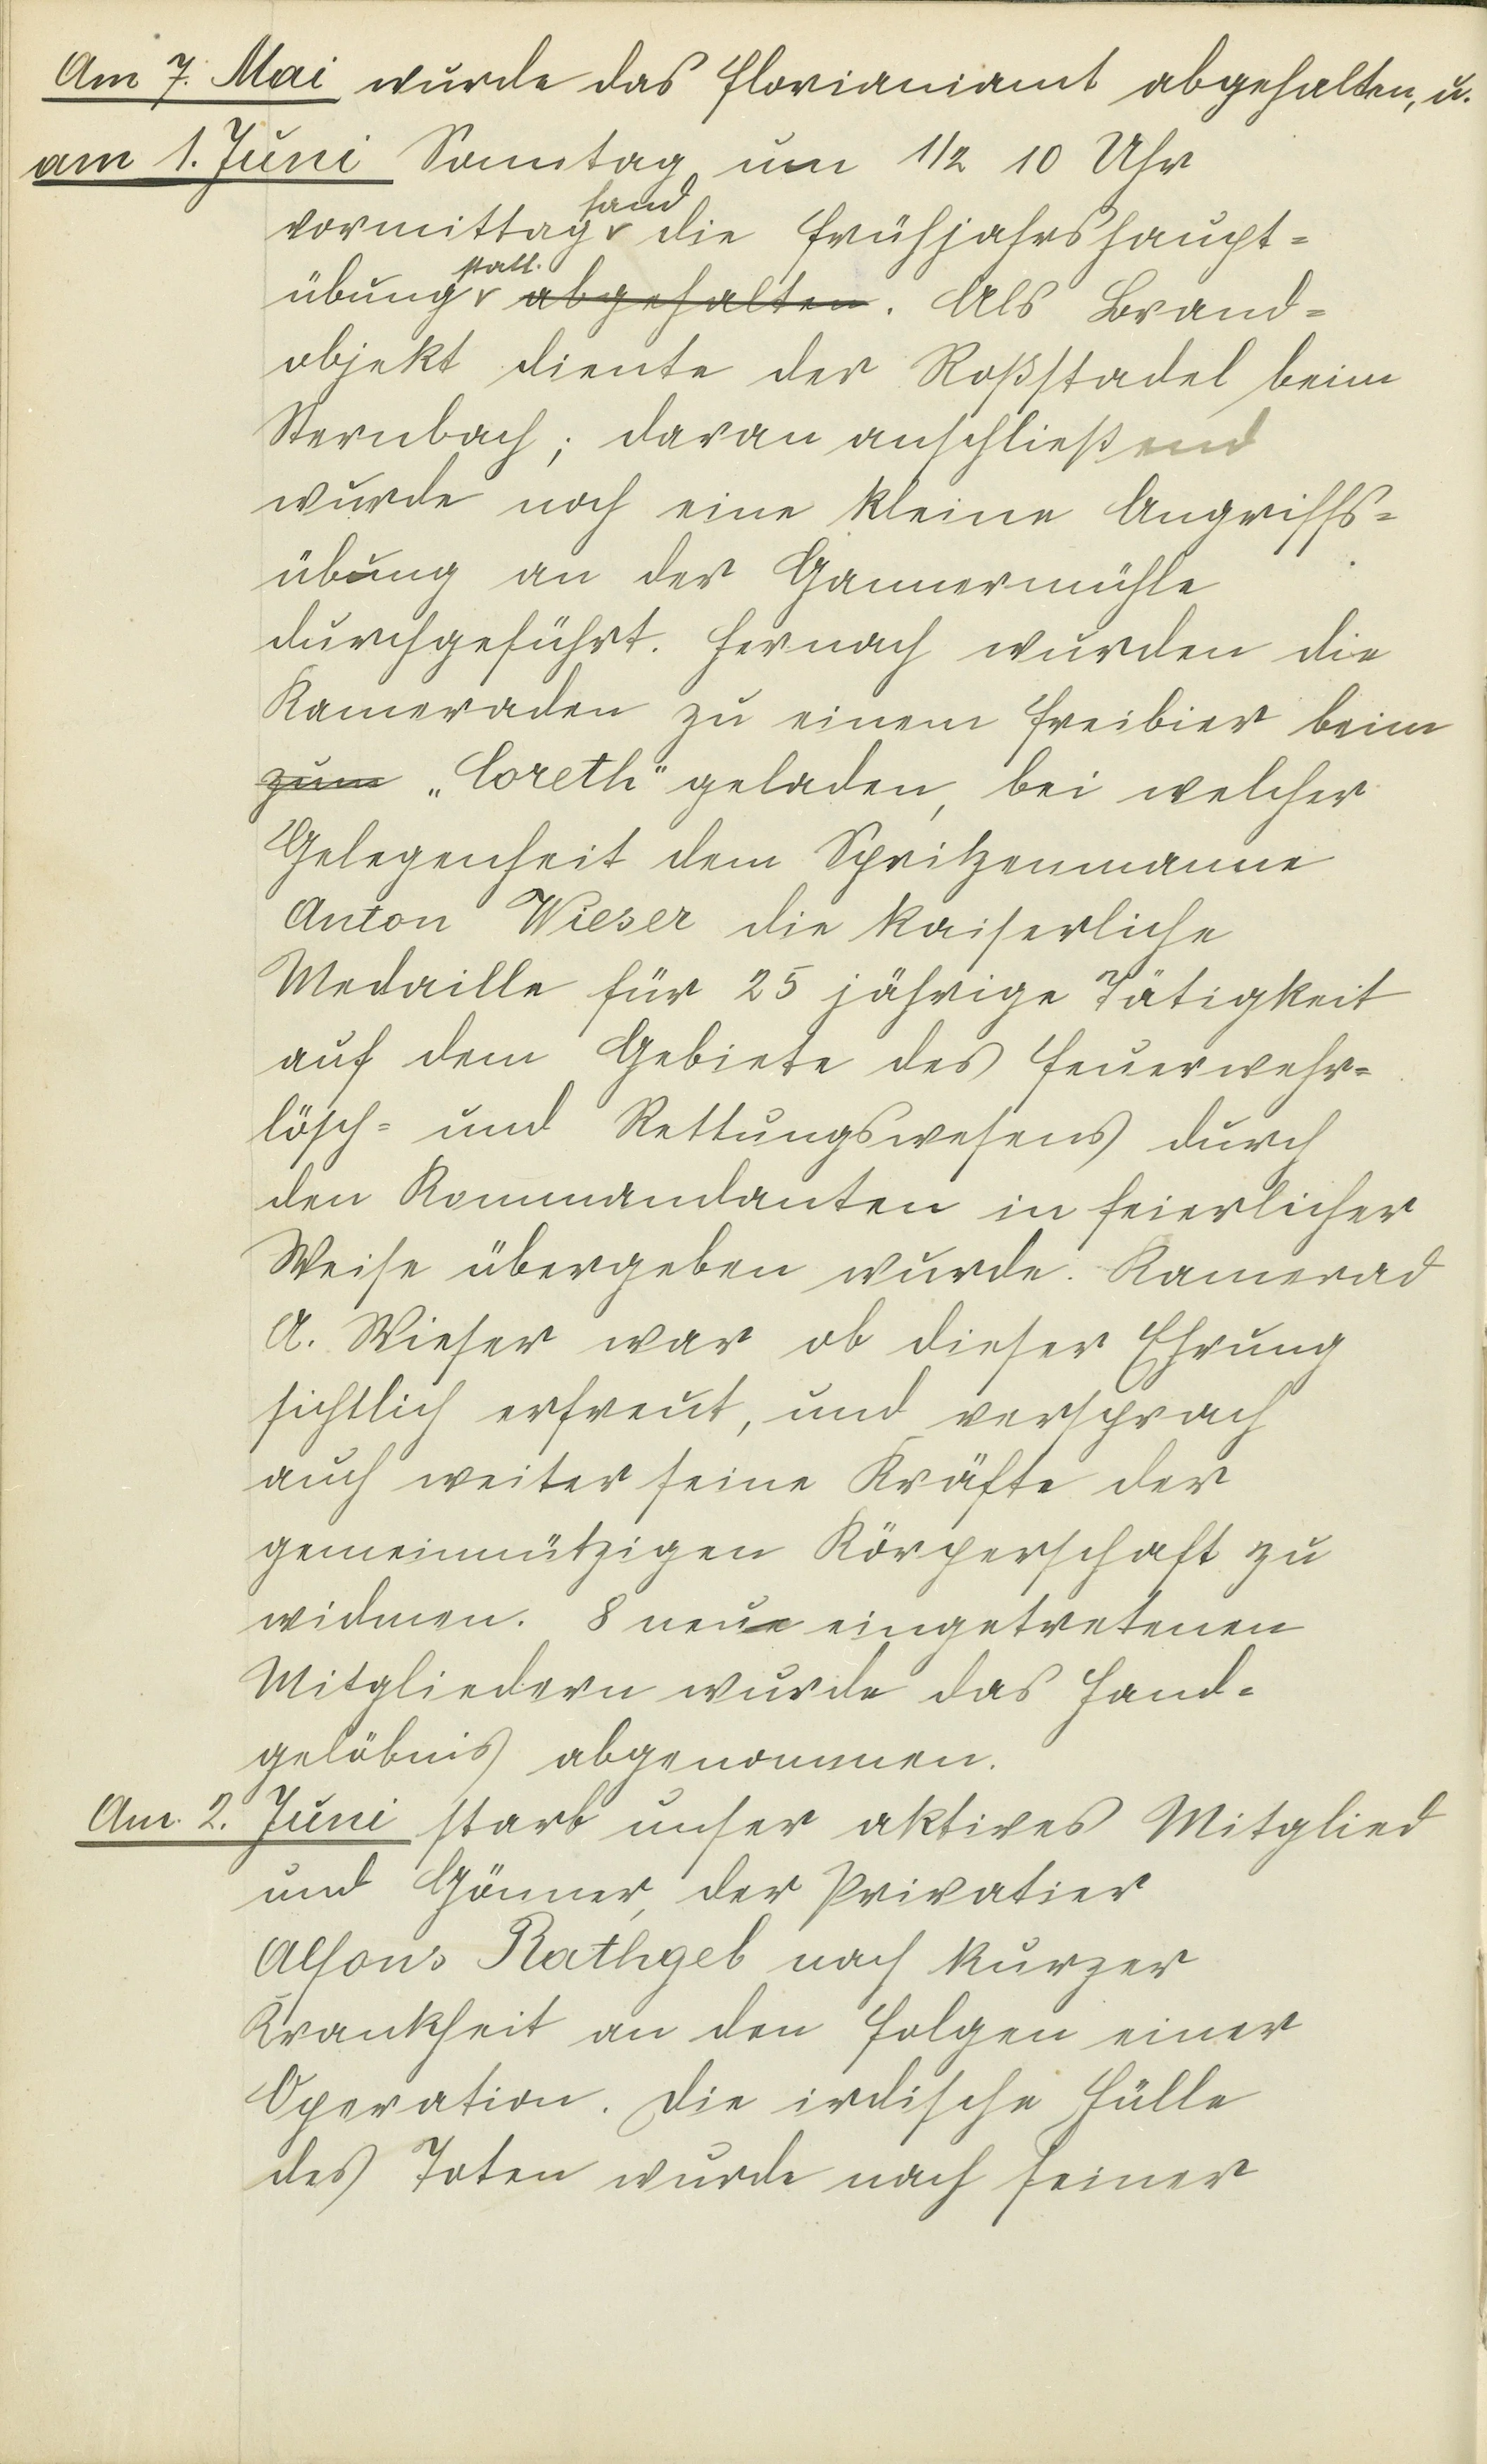 Am 7. Mai wurde das Florianiamt abgehalten, u.
am 1. Juni Sonntag um 1/2 10 Uhr
fand
vormittag die Frühjahrshaupt=
statt.
übung abgehalten. Als Brand=
objekt diente der Roßstadel beim
Sternbach; daran anschließend
wurde noch eine kleine Angriffs=
übung an der Gannermühle
durchgeführt. Hernach wurden die
Kameraden zu einem Freibier beim
zum „Coreth" geladen, bei welcher
Gelegenheit dem Spritzenmanne
Anton Wieser die kaiserliche
Medaille für 25 jährige Tätigkeit
auf dem Gebiete des Feuerwehr=
lösch= und Rettungswesens durch
den Kommandanten in feierlicher
Weise übergeben wurde. Kamerad
A. Wieser war ob dieser Ehrung
sichtlich erfreut, und versprach
auch weiter seine Kräfte der
gemeinnützigen Körperschaft zu
widmen. 8 neue eingetretenen
Mitgliedern wurde das Hand=
gelöbnis abgenommen.
Am 2. Juni starb unser aktives Mitglied
und Gönner, der Privatier
Alfons Rathgeb nach kurzer
Krankheit an den Folgen einer
Operation. Die irdische Hülle
des Toten wurde nach seiner